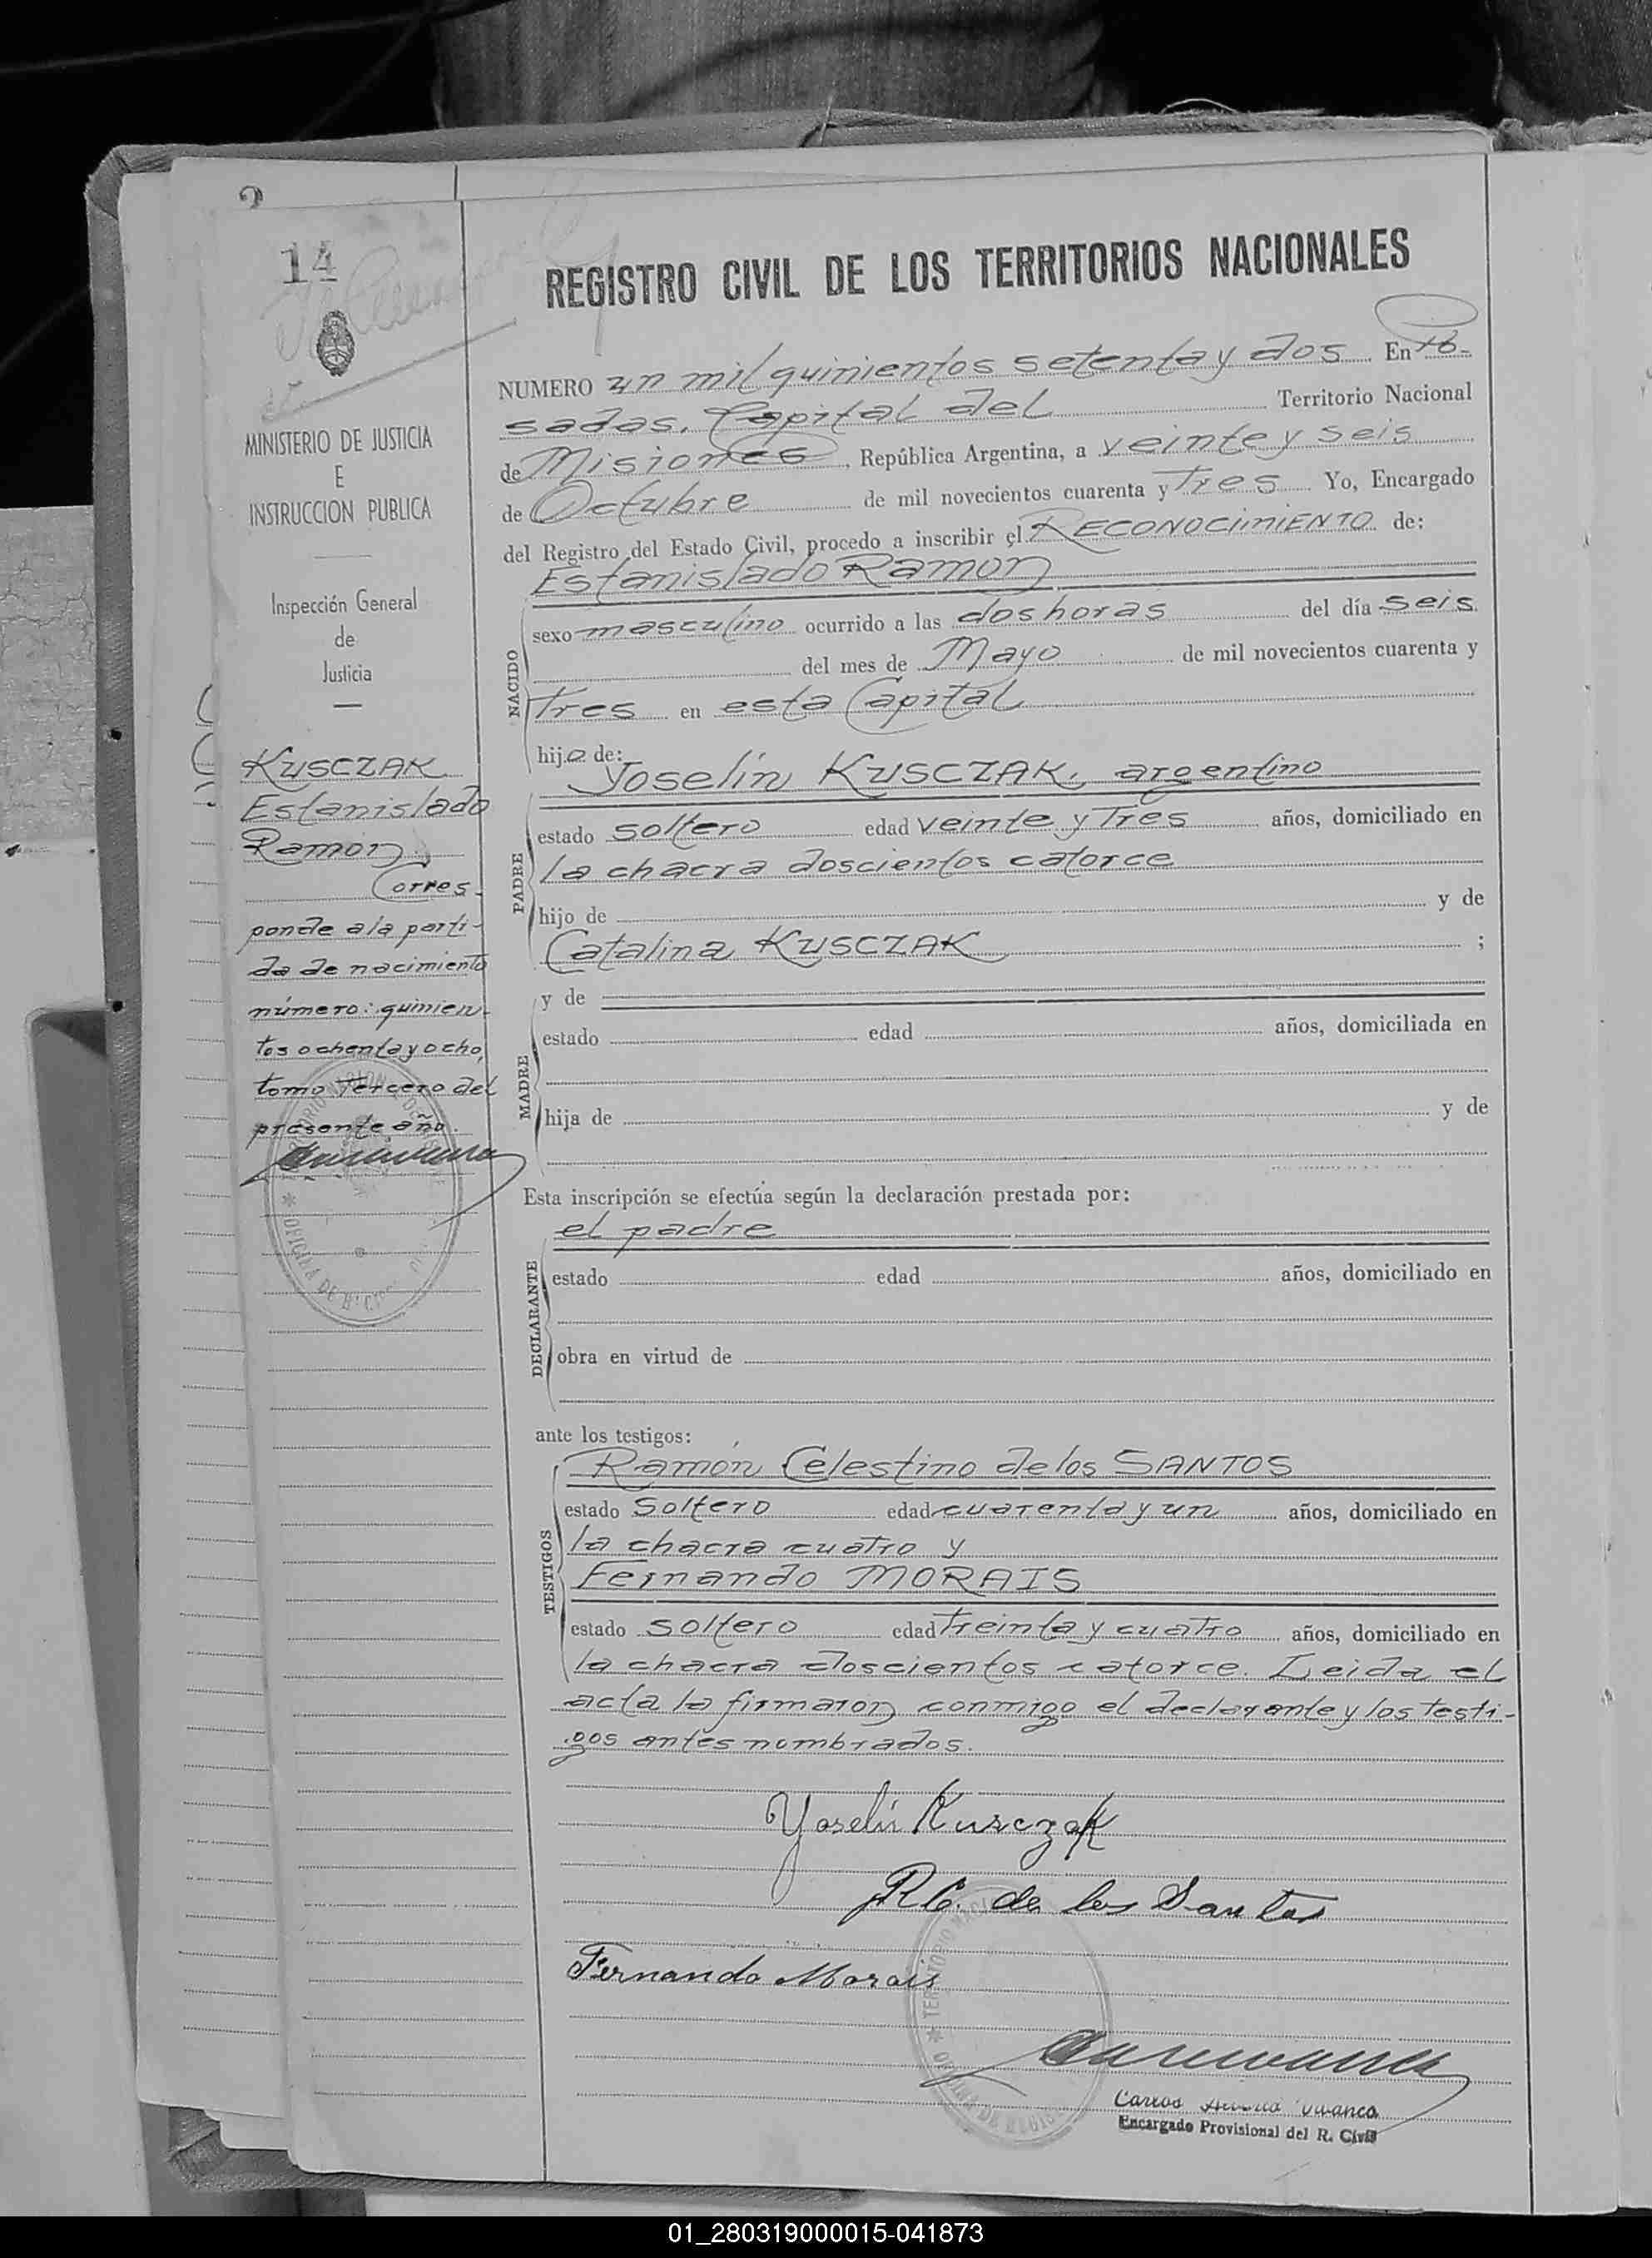 14
MINISTERIO DE JUSTICIA
E
INSTRUCCION PUBLICA
Inspección General
de
Justicia
KUSCZAK
Estanislado
Ramon
Corres-
ponde a la parti-
da de nacimiento
número: quinien-
tos ochenta y ocho,
tomo Tercero del
presente año.
REGISTRO CIVIL DE LOS TERRITORIOS NACIONALES
NUMERO un mil quinientos setenta y dos En Po-
sadas, Capital del Territorio Nacional
de Misiones, República Argentina, a veinte y seis
de Octubre de mil novecientos cuarenta y Tres Yo, Encargado
del Registro del Estado Civil, procedo a inscribir el RECONOCIMIENTO de:
Estanislado Ramon
NACIDO
sexo masculino ocurrido a las dos horas del día seis
del mes de Mayo de mil novecientos cuarenta y
Tres en esta Capital
hijo de:
Joselín KUSCZAK, argentino
PADRE
estado soltero edad veinte y Tres años, domiciliado en
la chacra doscientos catorce
hijo de y de
Catalina KUSCZAK ;
MADRE
y de
estado edad años, domiciliada en
hija de y de
Esta inscripción se efectúa según la declaración prestada por:
el padre
DECLARANTE
estado edad años, domiciliado en
obra en virtud de
ante los testigos:
Ramón Celestino de los SANTOS
TESTIGOS
estado Soltero edad cuarenta y un años, domiciliado en
la chacra cuatro y
Fernando MORAIS
estado soltero edad treinta y cuatro años, domiciliado en
la chacra doscientos catorce. Leida el
acta la firmaron conmigo el declarante y los testi-
gos antes nombrados.
Yoselin Kusczak
R C. de los Santos
Fernando Morais
Carlos Vivanco
Encargado Provisional del R. Civil
01_280319000015-041873